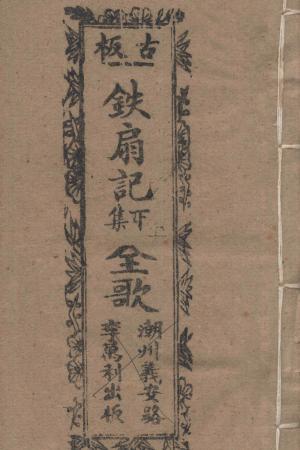 古板
鉄扇記
下集
上
全歌
潮州義安路
李萬利出板